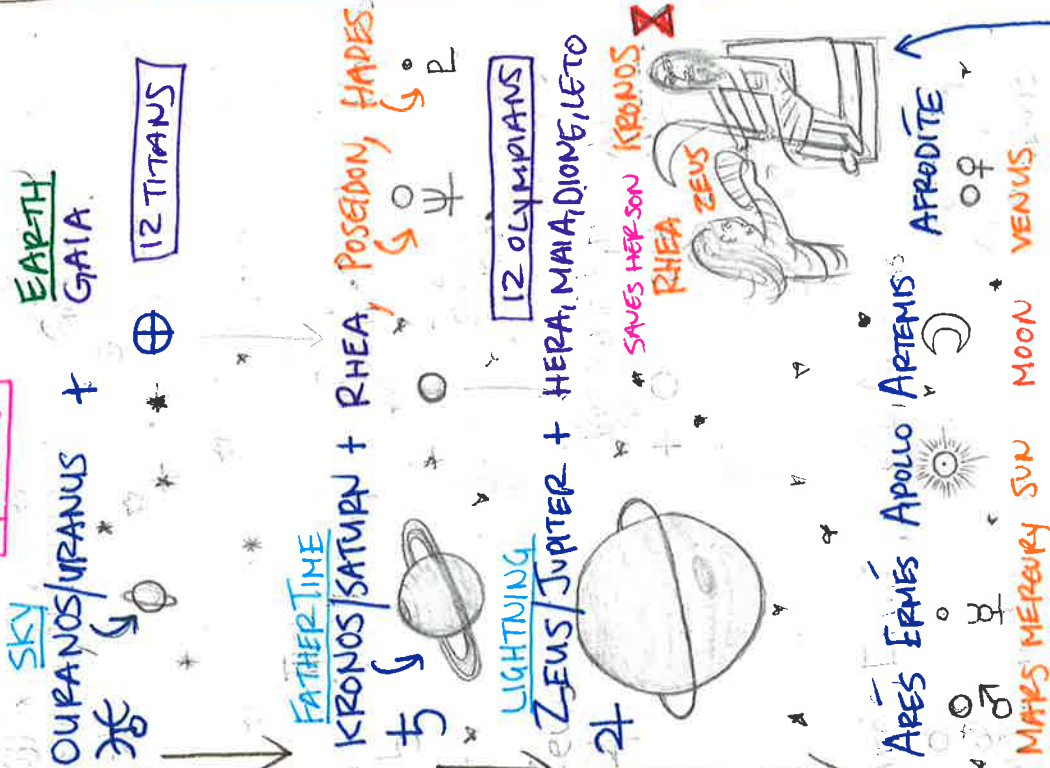 SKY
EARTH
OURANOS/URANUS + GAIA.
12 TITANS
FATHER TIME
KRONOS/SATURN + RHEA, POSEIDON, HADES
12 OLYMPIANS
LIGHTNING
ZEUS/JUPITER + HERA, MAIA, DIONE, LETO
SAVES HER SON KRONOS
RHEA ZEUS
ARES ERMÉS APOLLO ARTEMIS AFRODITE
MARS MERCURY SUN MOON VENUS